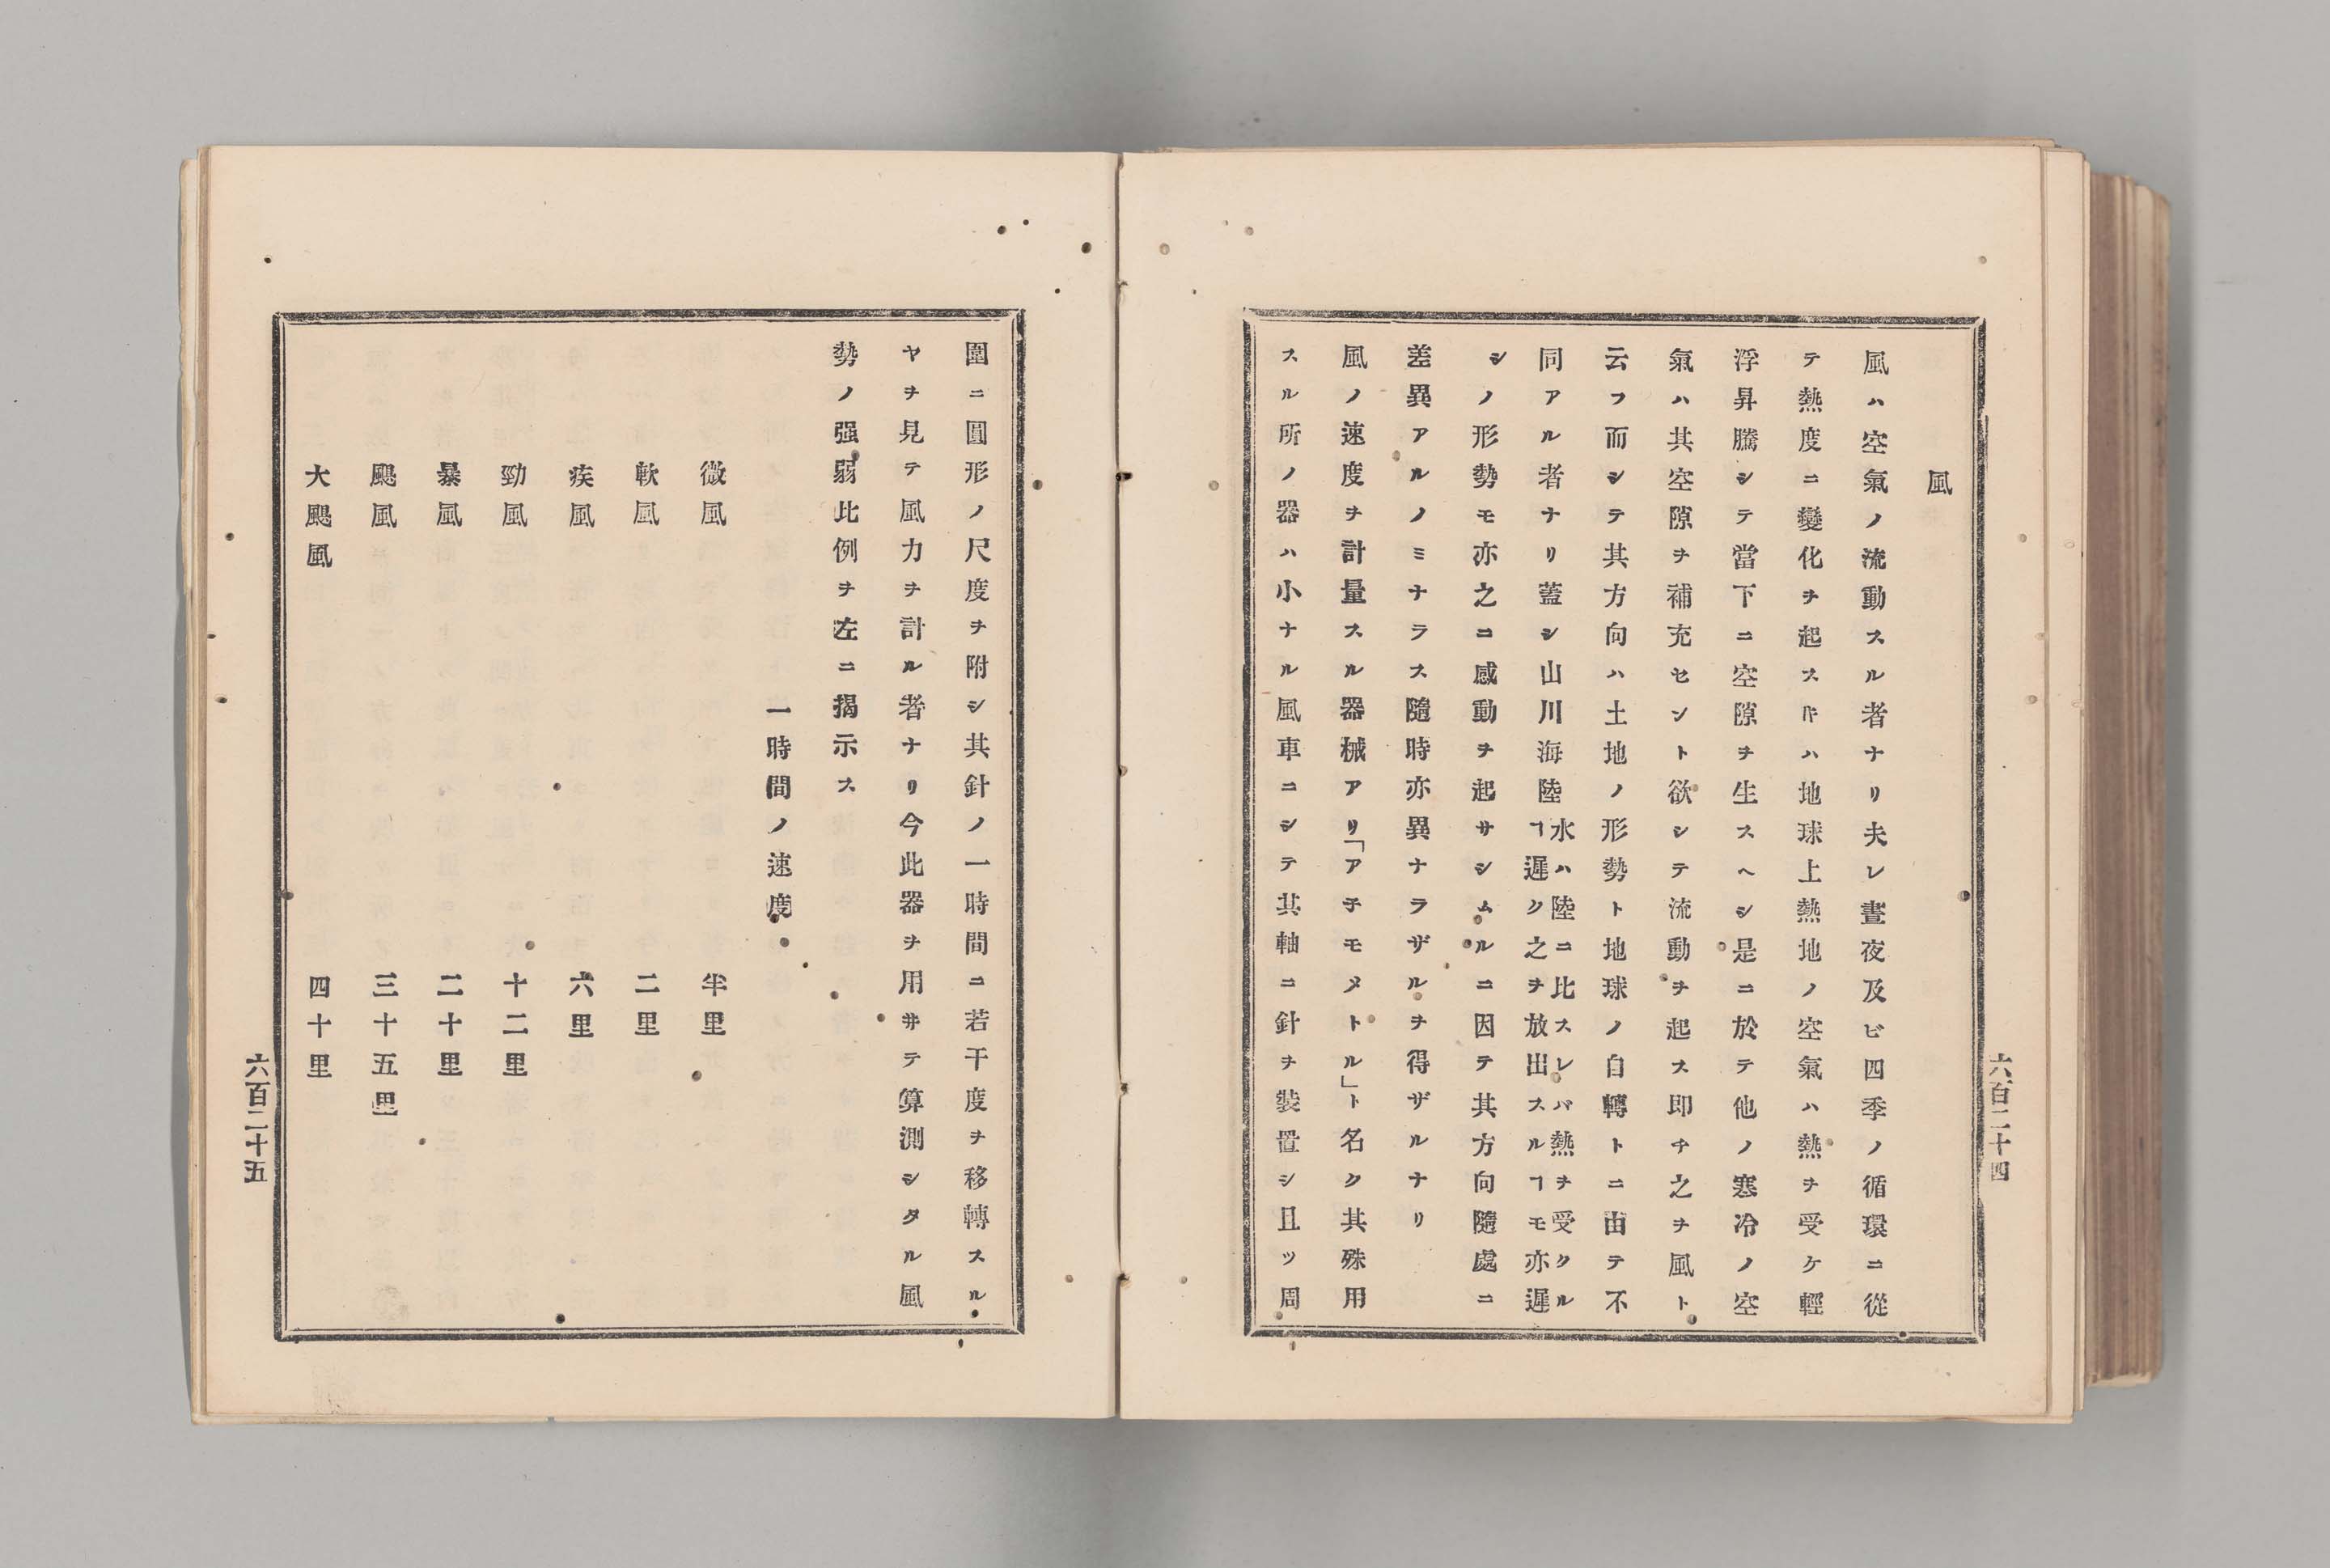 風
風ハ空氣ノ流動スル者ナリ夫レ晝夜及ビ四季ノ循環ニ從
テ熱度ニ變化ヲ起スキハ地球上熱地ノ空氣ハ熱ヲ受ケ輕
浮昇騰シテ當下ニ空隙ヲ生スヘシ是ニ於テ他ノ寒冷ノ空
氣ハ其空隙ヲ補充セント欲シテ流動ヲ起ス即チ之ヲ風ト
云フ而シテ其方向ハ土地ノ形勢ト地球ノ自轉トニ由テ不
同アル者ナリ蓋シ山川海陸水ハ陸ニ比スレバ熱ヲ受クルヿ遲ク之ヲ放出スルヿモ亦遲
シノ形勢モ亦之ニ感動ヲ起サシムルニ因テ其方向隨處ニ
差異アルノミナラス隨時亦異ナラザルヲ得ザルナリ
風ノ速度ヲ計量スル器械アリ「アチモメトル」ト名ク其殊用
スル所ノ器ハ小ナル風車ニシテ其軸ニ針ヲ装置シ且ツ周
六百二十四
圍ニ圓形ノ尺度ヲ附シ其針ノ一時間ニ若干度ヲ移轉スル
ヤヲ見テ風力ヲ計ル者ナリ今此器ヲ用井テ算測シタル風
勢ノ强弱比例ヲ左ニ揭示ス
一時間ノ速度
微風 半里
軟風 二里
疾風 六里
勁風 十二里
暴風 二十里
颶風 三十五里
大颶風 四十里
六百二十五